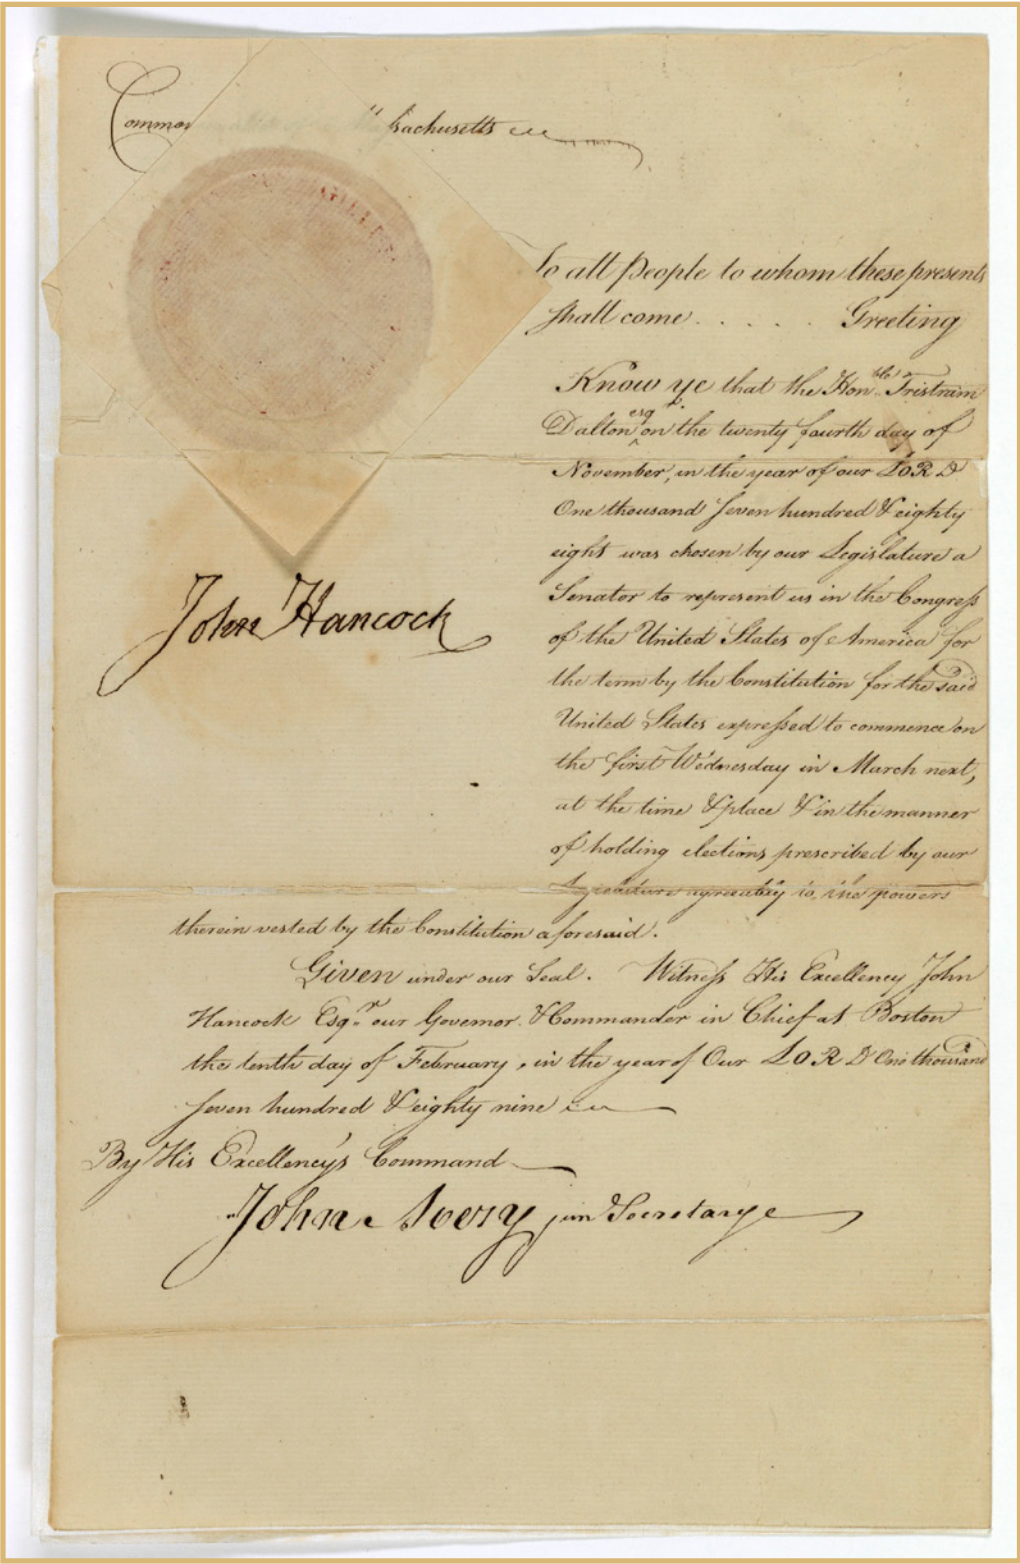 Common sachusetts
To all People to whom these presents
shall come . . . . . Greeting
Know ye that the Honble Tristram
Dalton esqr on the twenty fourth day of
November, in the year of our LORD
One thousand seven hundred & eighty
eight was chosen by our Legislature a
Senator to represent us in the Congress
of the United States of America for
the term by the Constitution for the said
United States expressed to commence on
the first Wednesday in March next,
at the time & place & in the manner
of holding elections prescribed by our
Legislature agreeably to the powers
therein vested by the Constitution aforesaid.
Given under our Seal. Witness His Excellency John
Hancock Esqr. our Governor & Commander in Chief at Boston
the tenth day of February, in the year of Our LORD One thousand
seven hundred & eighty nine
John Hancock
By His Excellency's Command
John Avery jun Secretary